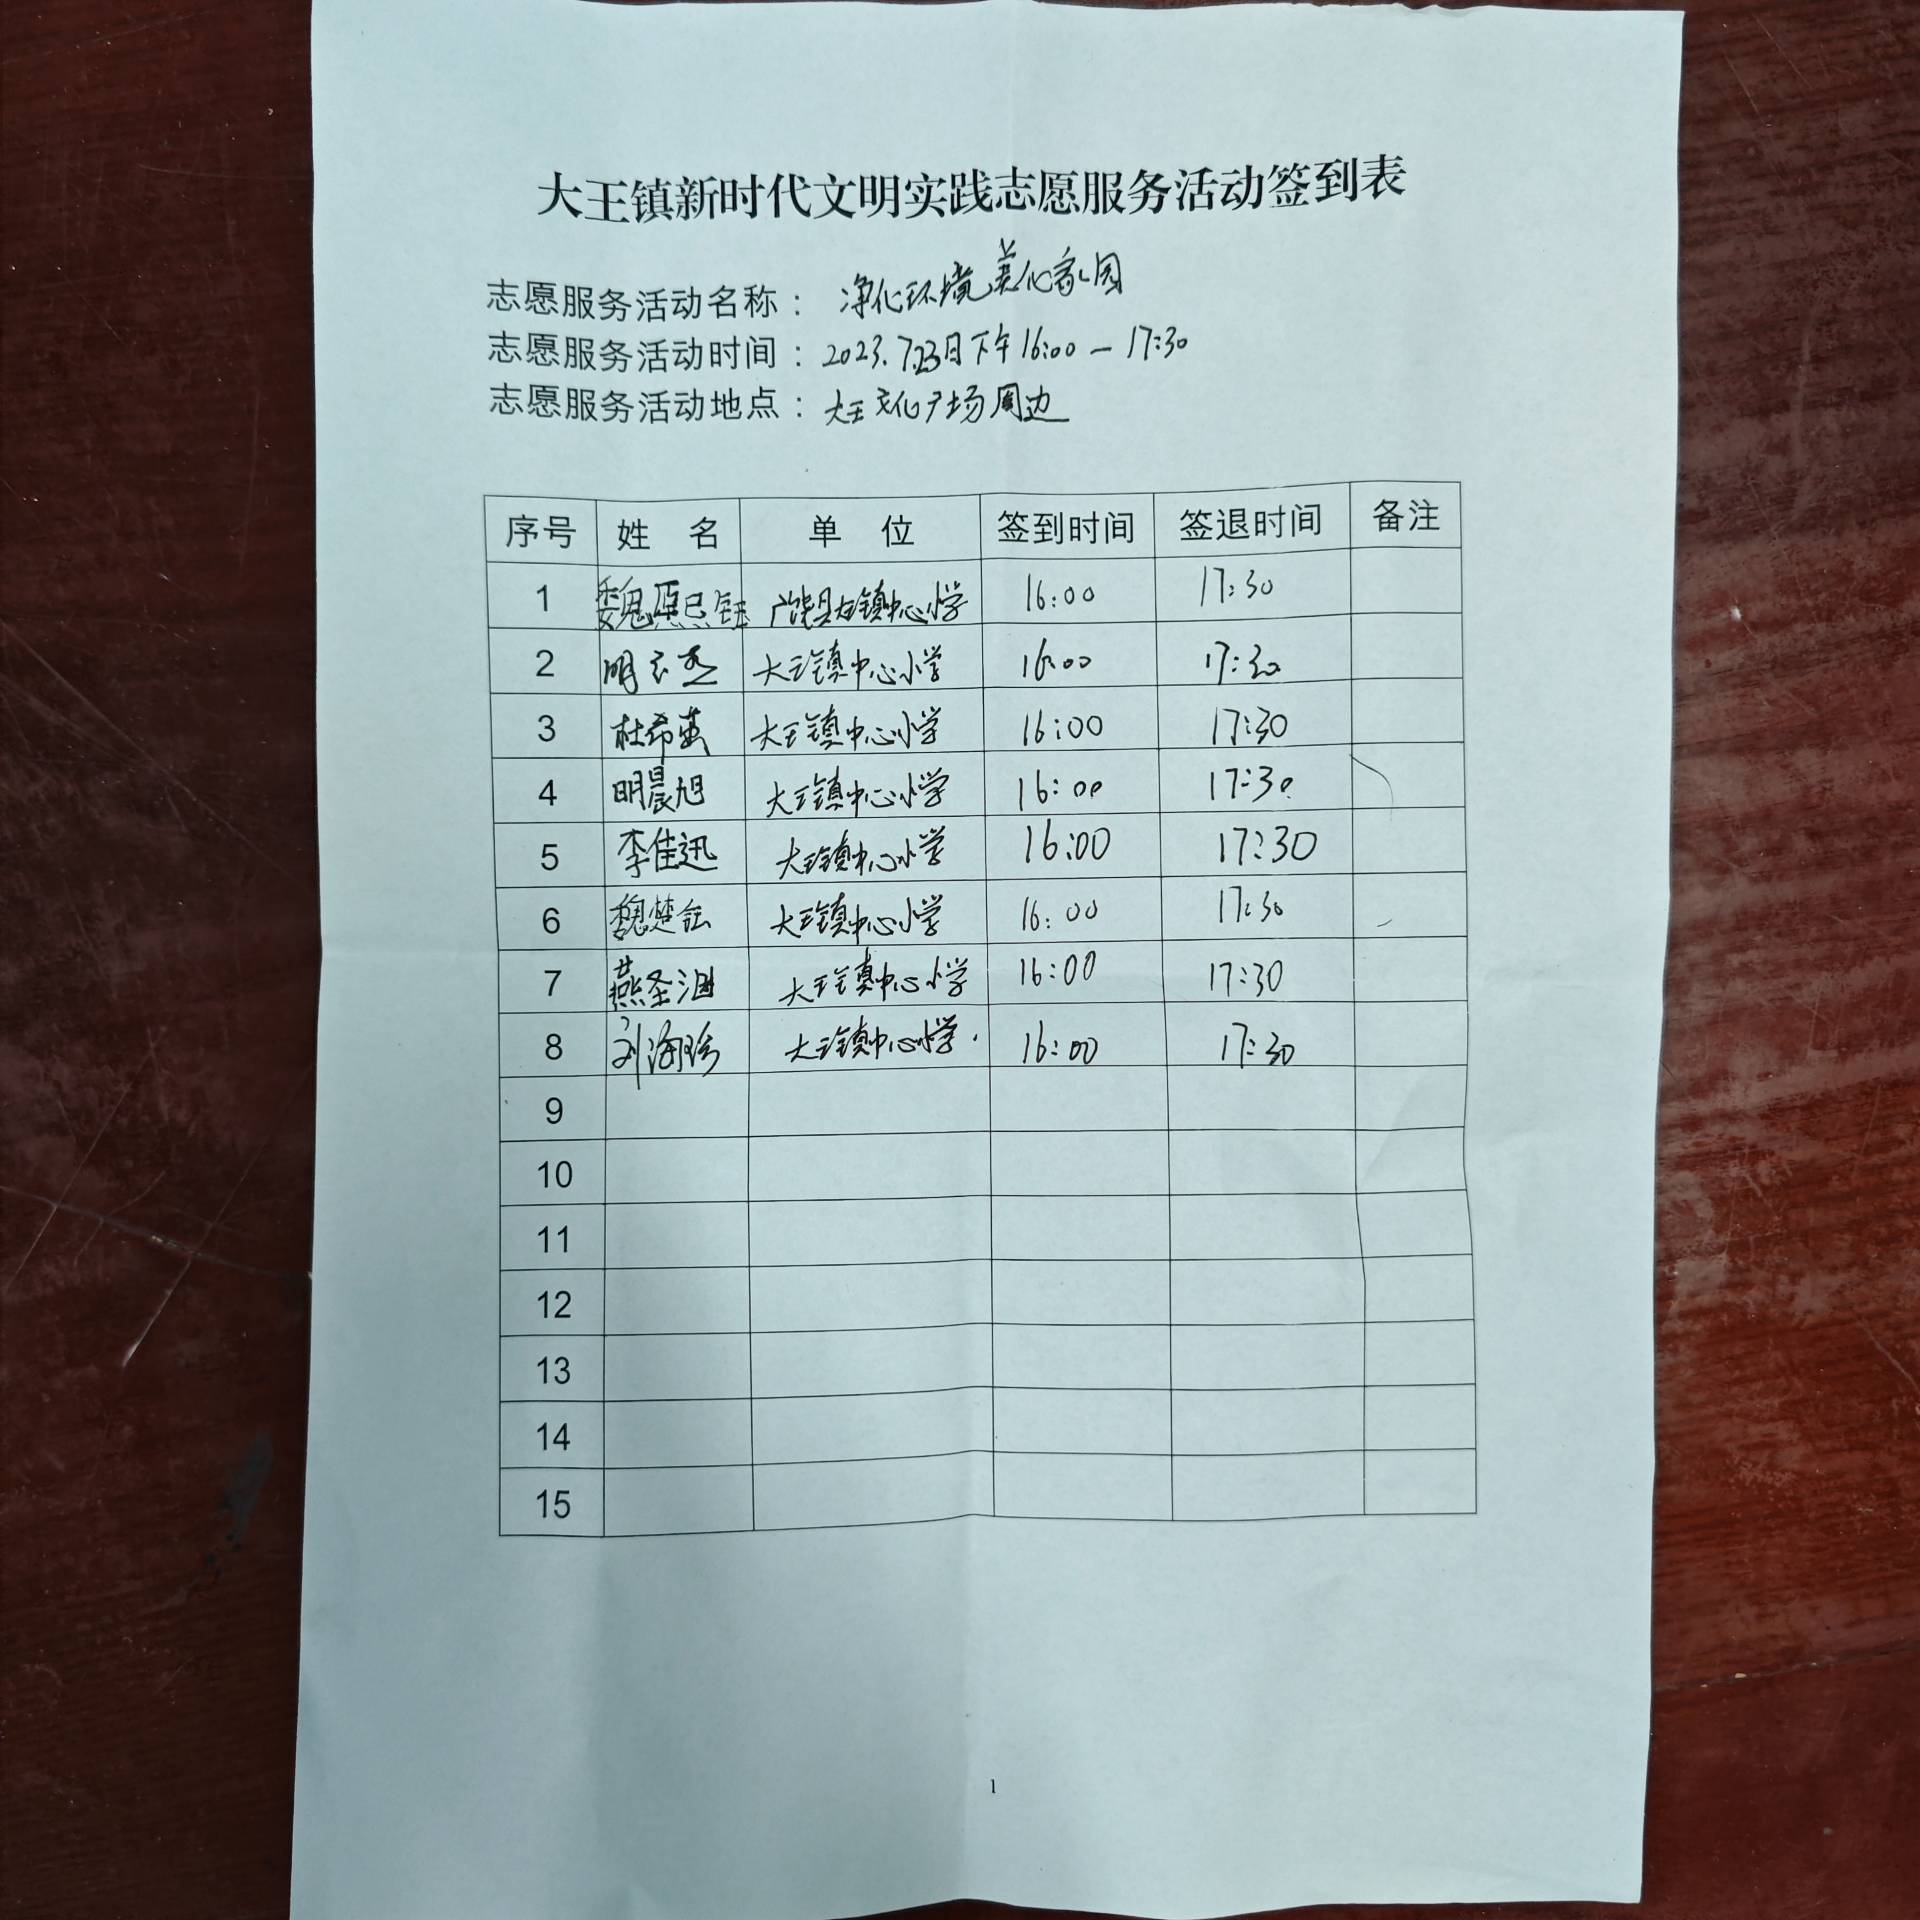 大王镇新时代文明实践志愿服务活动签到表
志愿服务活动名称：净化环境美化家园
志愿服务活动时间：2023.7.23日下午16:00—17:30
志愿服务活动地点：大王文化广场周边
序号 姓 名 单 位 签到时间 签退时间 备注
1 魏熙钰 广饶县大王镇中心小学 16:00 17:30
2 明 大王镇中心小学 16:00 17:30
3 杜希 大王镇中心小学 16:00 17:30
4 明晨旭 大王镇中心小学 16:00 17:30
5 李佳迅 大王镇中心小学 16:00 17:30
6 魏楚 大王镇中心小学 16:00 17:30
7 燕圣 大王镇中心小学 16:00 17:30
8 刘海珍 大王镇中心小学. 16:00 17:30
9
10
11
12
13
14
15
1